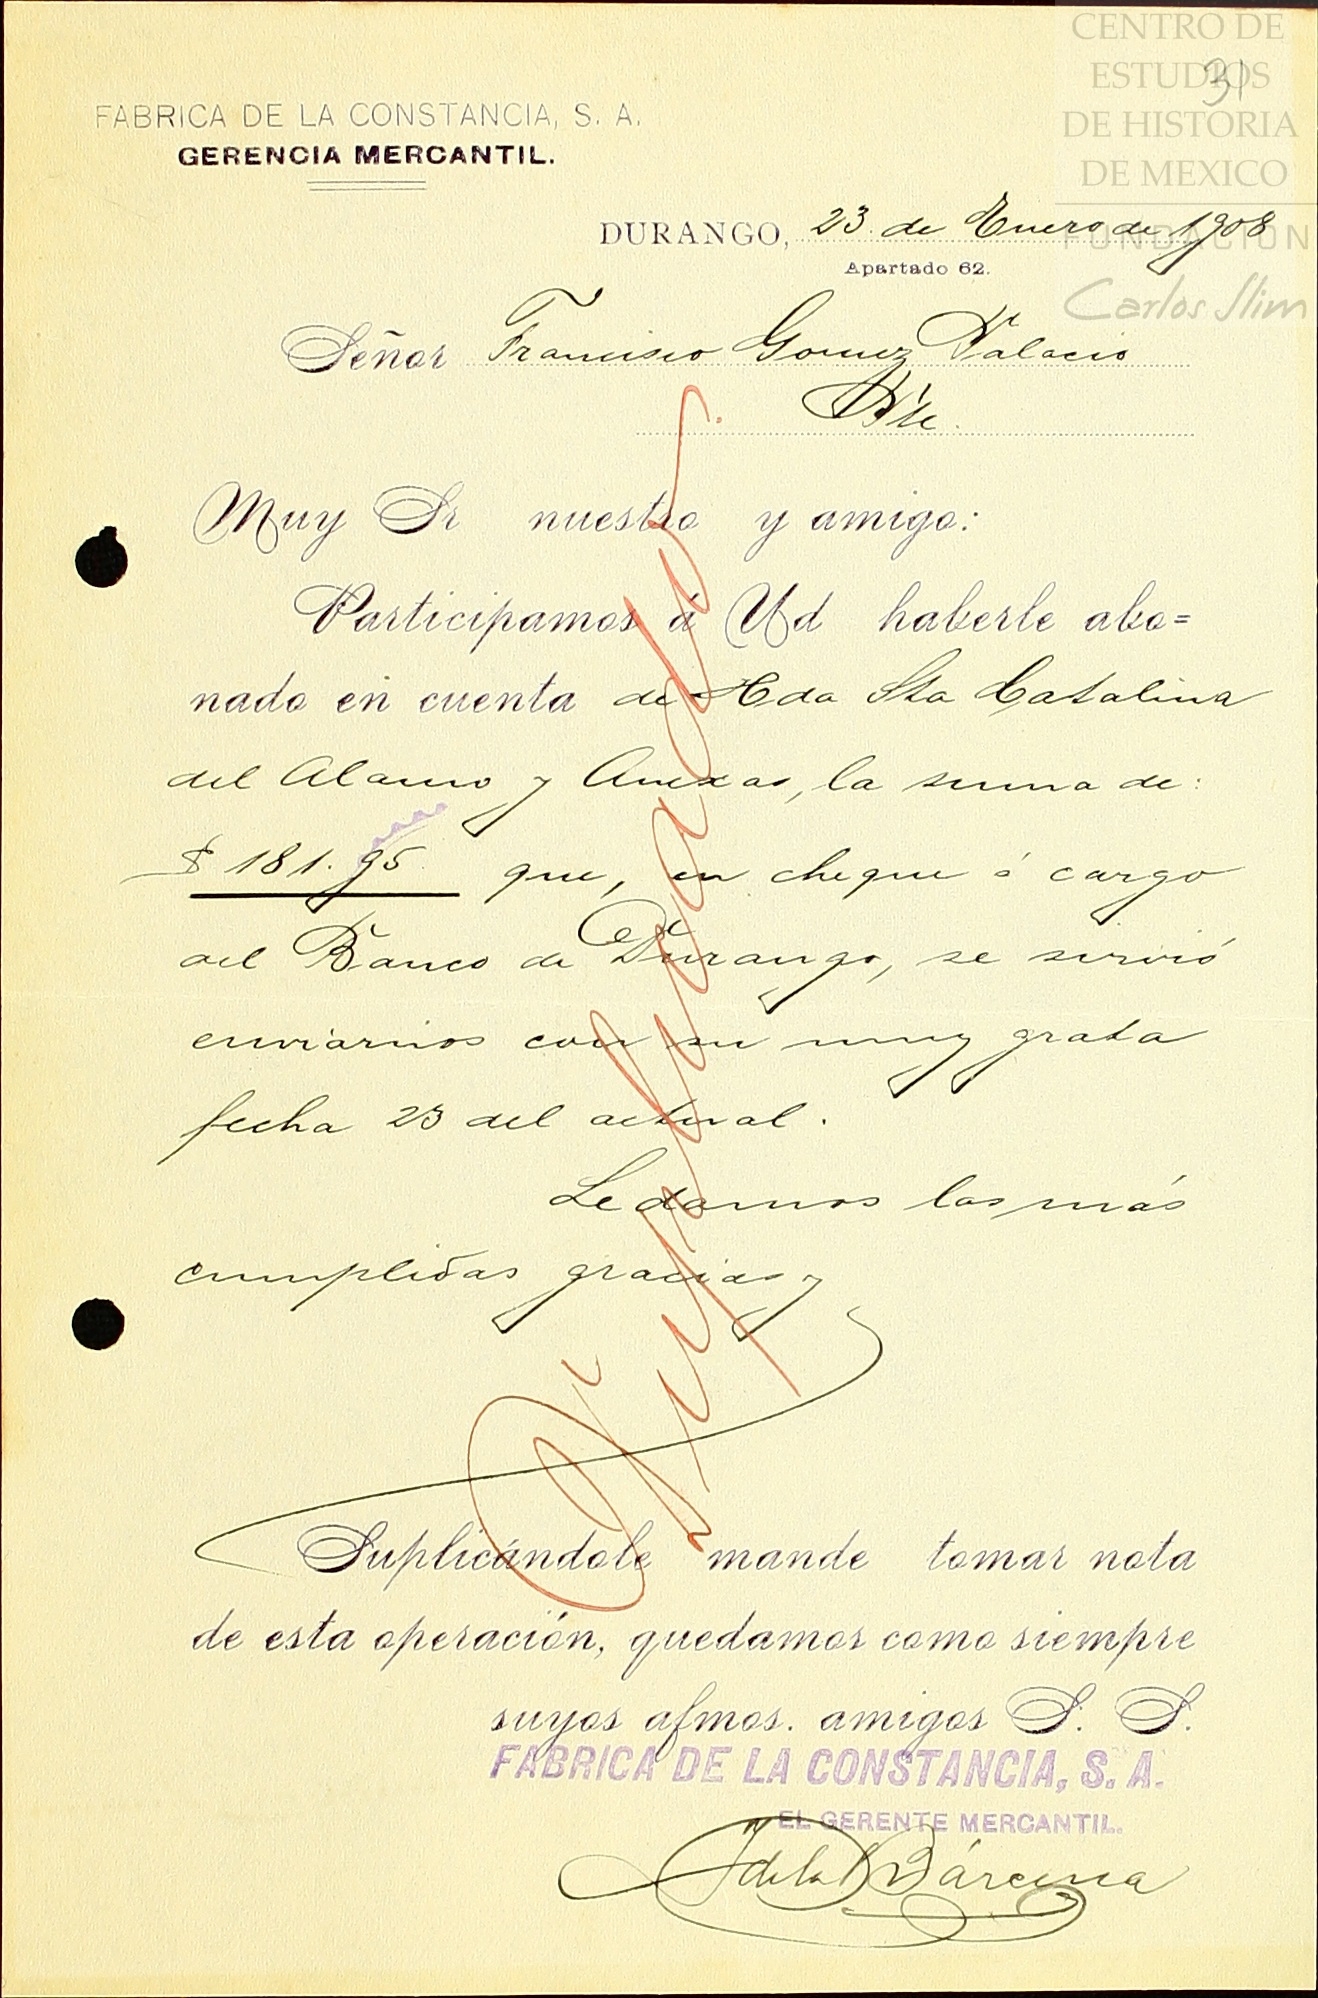 CENTRO DE
ESTUDIOS
DE HISTORIA
DE MEXICO
FUNDACIÓN
Carlos Slim
31
FABRICA DE LA CONSTANCIA, S. A.
GERENCIA MERCANTIL.
DURANGO, 23 de Enero de 1908
Apartado 62.
Señor Francisco Gomez Palacio
Pte.
Muy Sr nuestro y amigo:
Participamos á Ud haberle abo=
nado en cuenta de Hda Sta Catalina
del Alamo y Anexas, la suma de:
$ 181.95 que, en cheque á cargo
del Banco de Durango, se sirvió
enviarnos con su muy grata
fecha 23 del actual.
Le damos las más
cumplidas gracias y
Suplicándole mande tomar nota
de esta operación, quedamos como siempre
suyos afmos. amigos S. S.
FABRICA DE LA CONSTANCIA, S. A.
EL GERENTE MERCANTIL.
J de la Bárcena